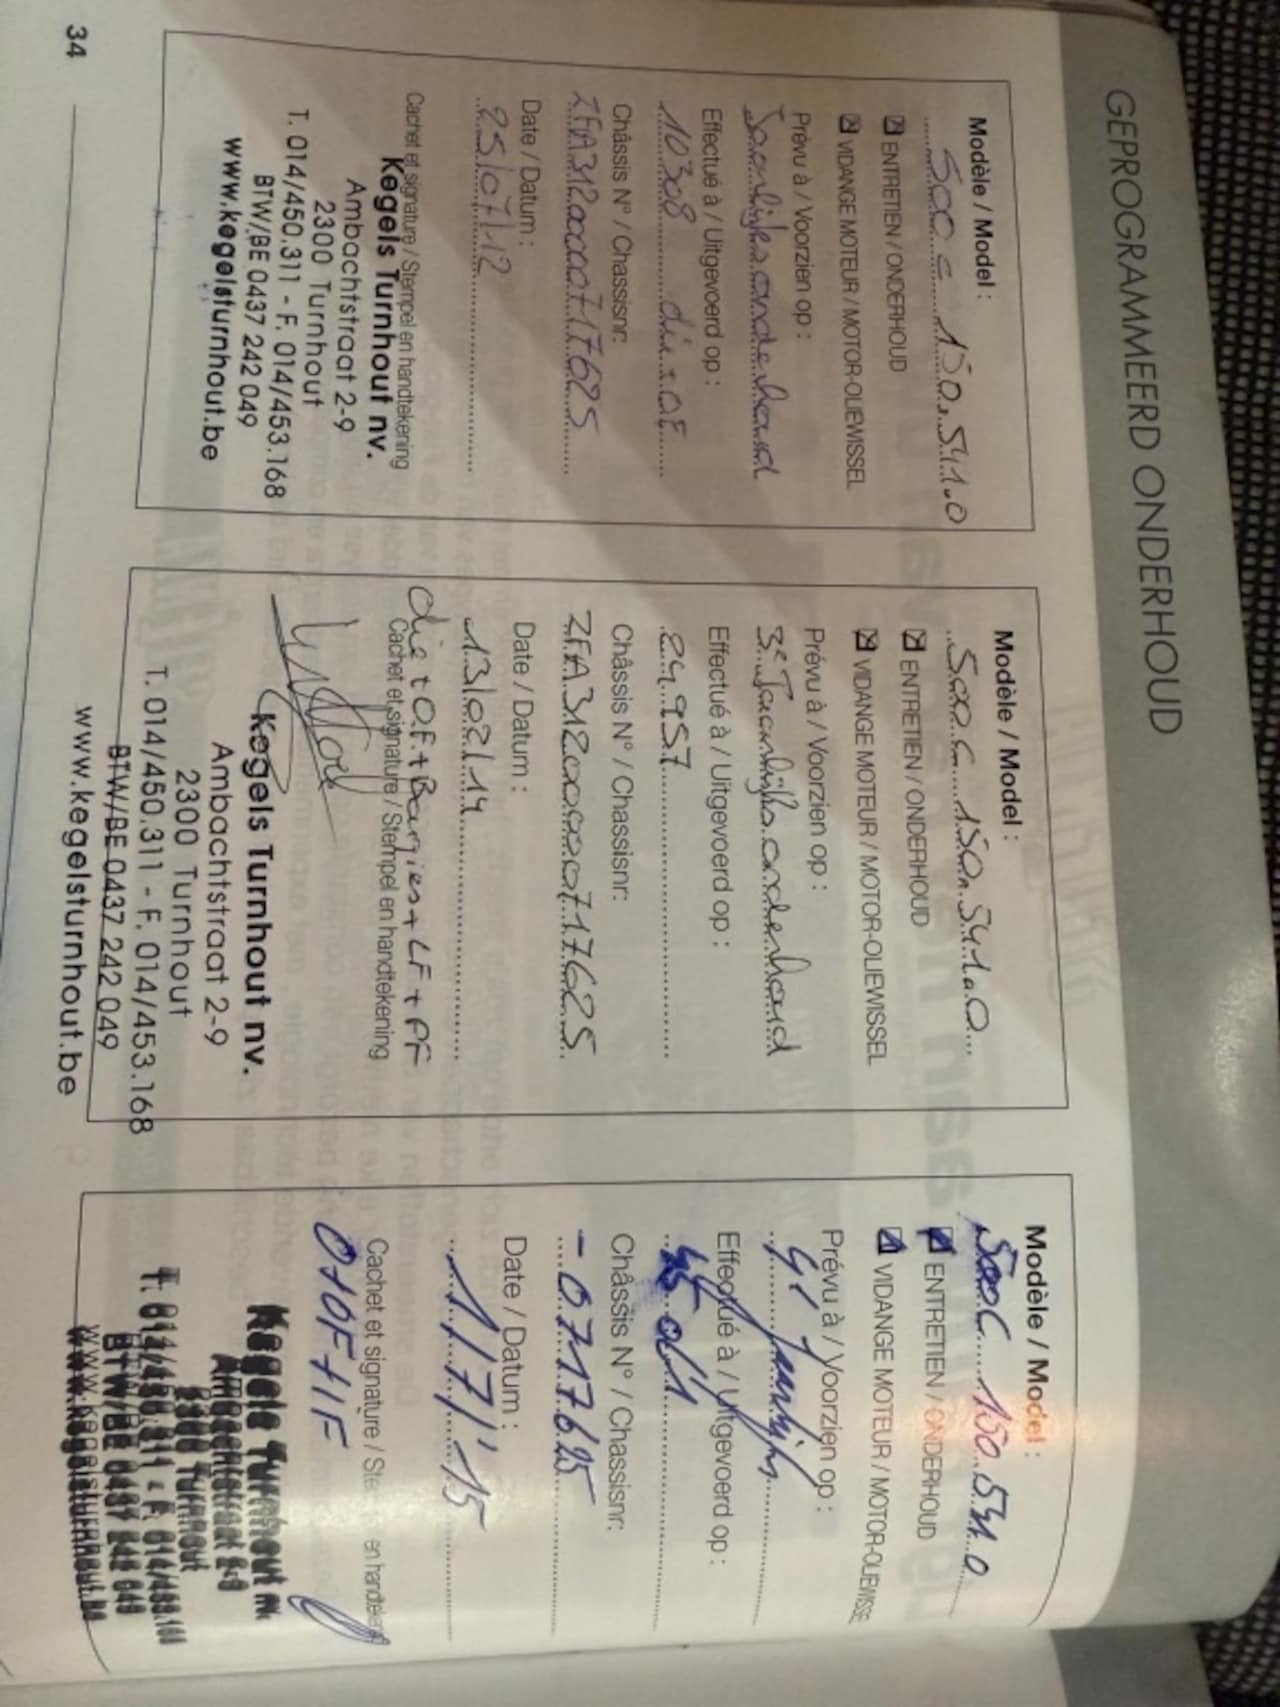 GEPROGRAMMEERD ONDERHOUD
Modèle / Model :
500 C 150.541.0
☒ ENTRETIEN / ONDERHOUD
☒ VIDANGE MOTEUR / MOTOR-OLIEWISSEL
Prévu à / Voorzien op :
Jaarlijks onderhoud
Effectué à / Uitgevoerd op :
10308 olie + OF
Châssis N° / Chassisnr:
ZFA31200000717625
Date / Datum :
25/07/12
Cachet et signature / Stempel en handtekening
Kegels Turnhout nv.
Ambachtstraat 2-9
2300 Turnhout
T. 014/450.311 - F. 014/453.168
BTW/BE 0437 242 049
www.kegelsturnhout.be
Modèle / Model :
500 C 150.541.0
☒ ENTRETIEN / ONDERHOUD
☒ VIDANGE MOTEUR / MOTOR-OLIEWISSEL
Prévu à / Voorzien op :
3e Jaarlijks onderhoud
Effectué à / Uitgevoerd op :
24.957
Châssis N° / Chassisnr:
ZFA31200000717625
Date / Datum :
13/02/14
olie + OF + Bougies + LF + PF
Cachet et signature / Stempel en handtekening
Kegels Turnhout nv.
Ambachtstraat 2-9
2300 Turnhout
T. 014/450.311 - F. 014/453.168
BTW/BE 0437 242 049
www.kegelsturnhout.be
Modèle / Model :
500C 150.541.0
☒ ENTRETIEN / ONDERHOUD
☒ VIDANGE MOTEUR / MOTOR-OLIEWISSE
Prévu à / Voorzien op :
Jaarlijks
Effectué à / Uitgevoerd op :
Châssis N° / Chassisnr:
- 0717625
Date / Datum :
1/7/'15
Cachet et signature / Ste en handteken
O+OF+IF
Kegels Turnhout nv
Ambachtstraat 2-9
2300 Turnhout
T. 014/450.311 - F. 014/453.168
BTW/BE 0437 242 049
www.kegelsturnhout.be
34